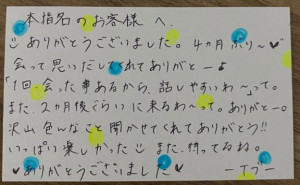 本指名のお客様へ.
ありがとうございました。4カ月ぶり〜♥
会って思いだしてくれてありがと〜♪
「1回会った事あるから、話しやすいわ〜」って。
また、2カ月後ぐらいに来るわ〜って。ありがと〜。
沢山色んなこと聞かせてくれてありがとう!!
いっぱい楽しかった また、待ってるね。
♥ありがとうございました♥